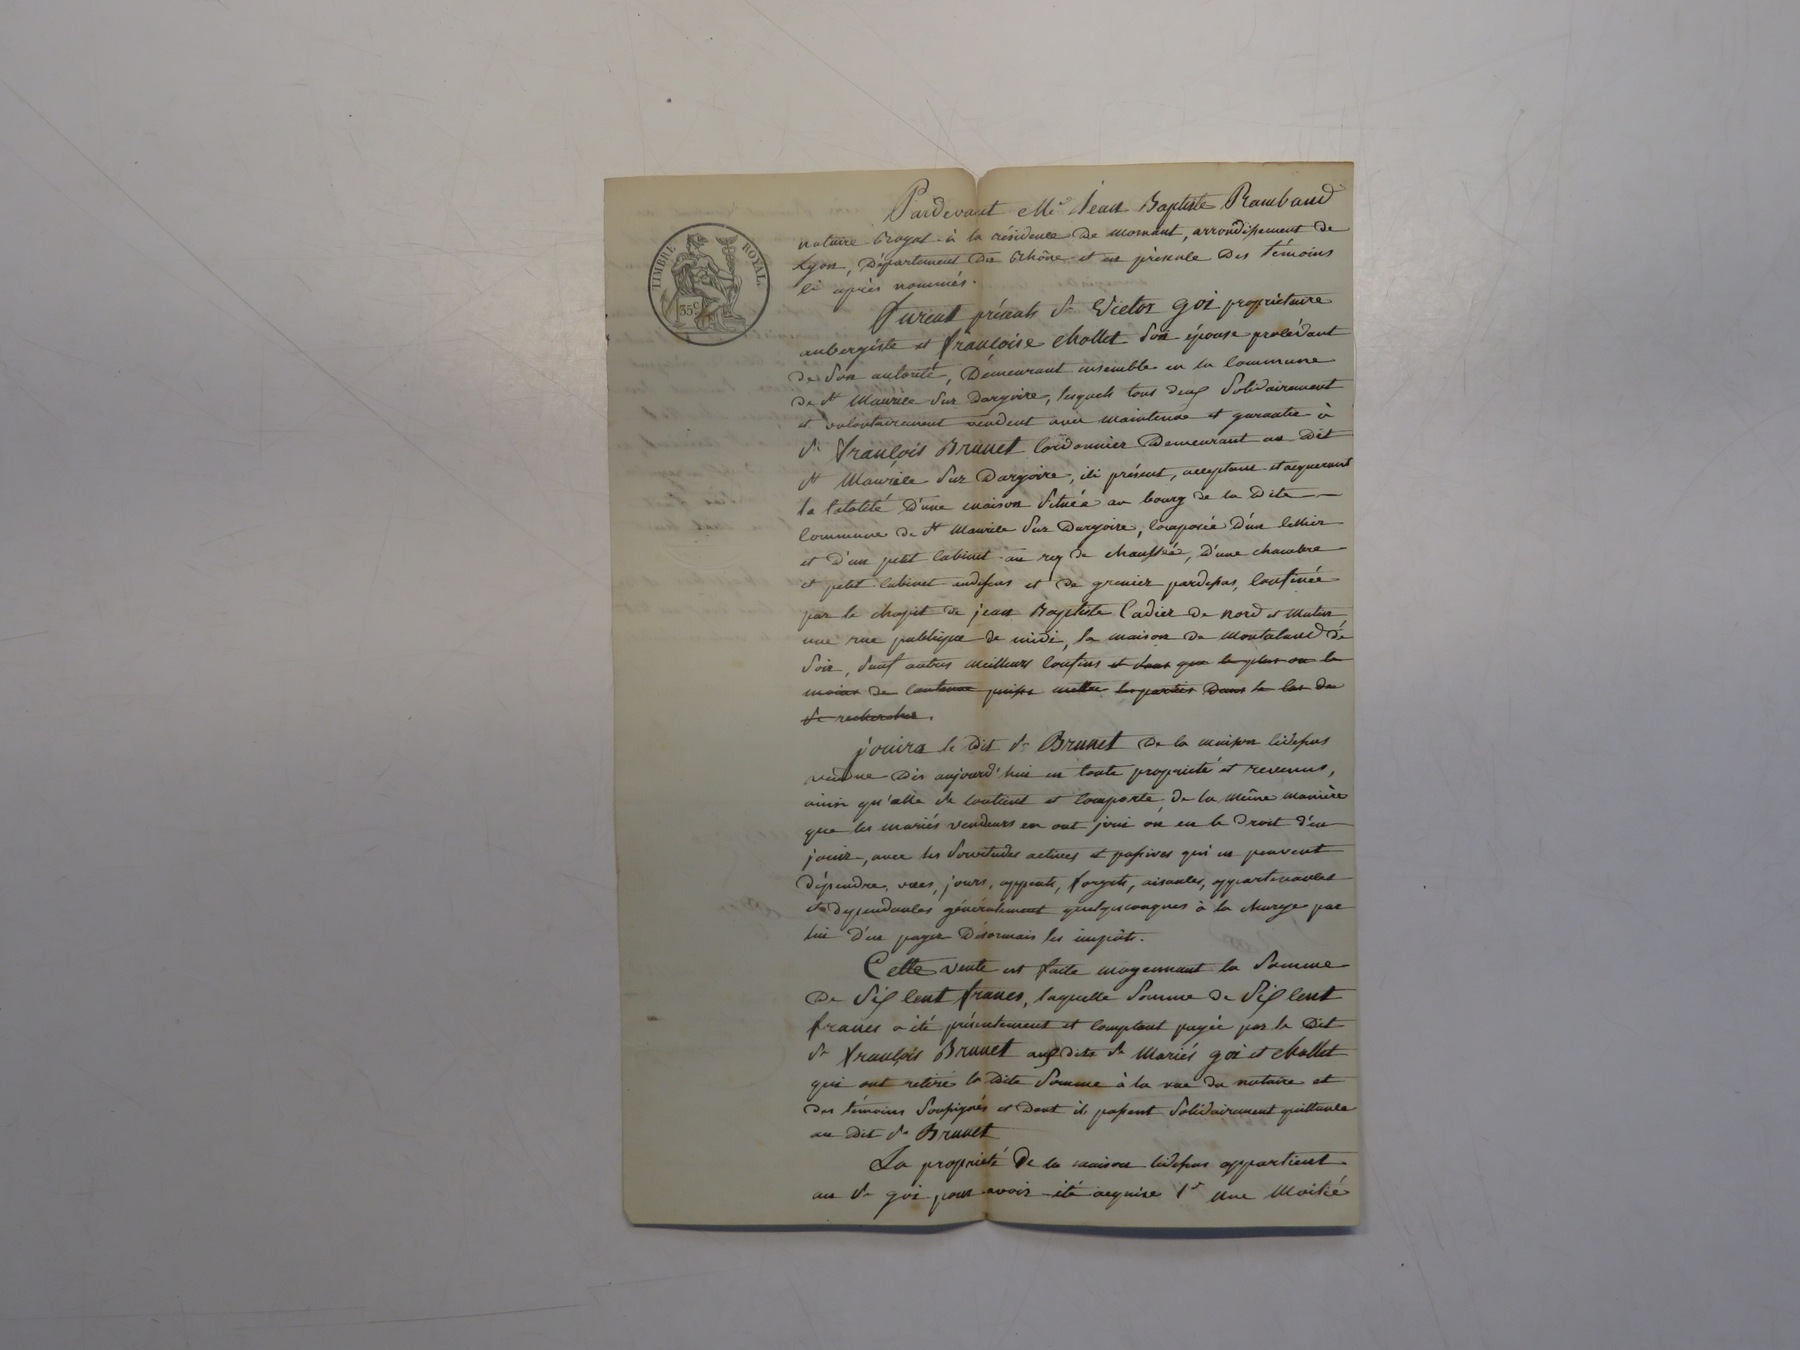 TIMBRE ROYAL
35 c
Pardevant Me Jean Baptiste Rambaud
notaire Royal à la résidence de mornant, arrondissement de
Lyon, Département du Rhône et en présence des témoins
ci après nommés.
Furent présents Sr Victor goi propriétaire
aubergiste et françoise chollet son épouse procédant
de son autorité, Demeurant ensemble en la commune
de st Maurice sur dargoire, lesquels tous deux solidairement
et volontairement vendent avec maintenue et garantie à
Sr françois Brunet cordonnier Demeurant au dit
st Maurice sur Dargoire, ici présent, acceptant et acquerant
la totalité d'une maison située au bourg de la dite
commune de st Maurice sur Dargoire, composée d'un cellier
et d'un petit cabinet au rez de chaussée, d'une chambre
et petit cabinet audessus et de grenier pardessus, confinée
par le chapit de jean Baptiste Cadier de nord et matin,
une rue publique de midi, la maison de Montaland de
soir, sauf autres meilleurs confins et sans que le plus ou le
moins de contenue puisse mettre les parties dans le cas de
se rechercher.
jouira le dit sr Brunet de la maison cidessus
vendue dès aujourd'hui en toute propriété et revenus,
ainsi qu'elle se contient et comporte, de la même manière
que les mariés vendeurs en ont joui ou eu le droit d'en
jouir, avec les servitudes actives et passives qui en peuvent
dépendre, vues, jours, appents, forgets, aisances, appartenances
et dependances généralement quelquonques à la charge par
lui d'en payer désormais les impôts.
Cette vente est faite moyennant la somme
de six cent francs, laquelle somme de six cent
francs a été présentement et comptant payée par le dit
sr françois Brunet aux dits sr mariés goi et chollet
qui ont retiré la dite somme à la vue du notaire et
des témoins soussignés et dont ils passent solidairement quittance
au dit sr Brunet
La propriété de la maison cidessus appartient
au sr goi pour avoir été acquise 1o une moitié